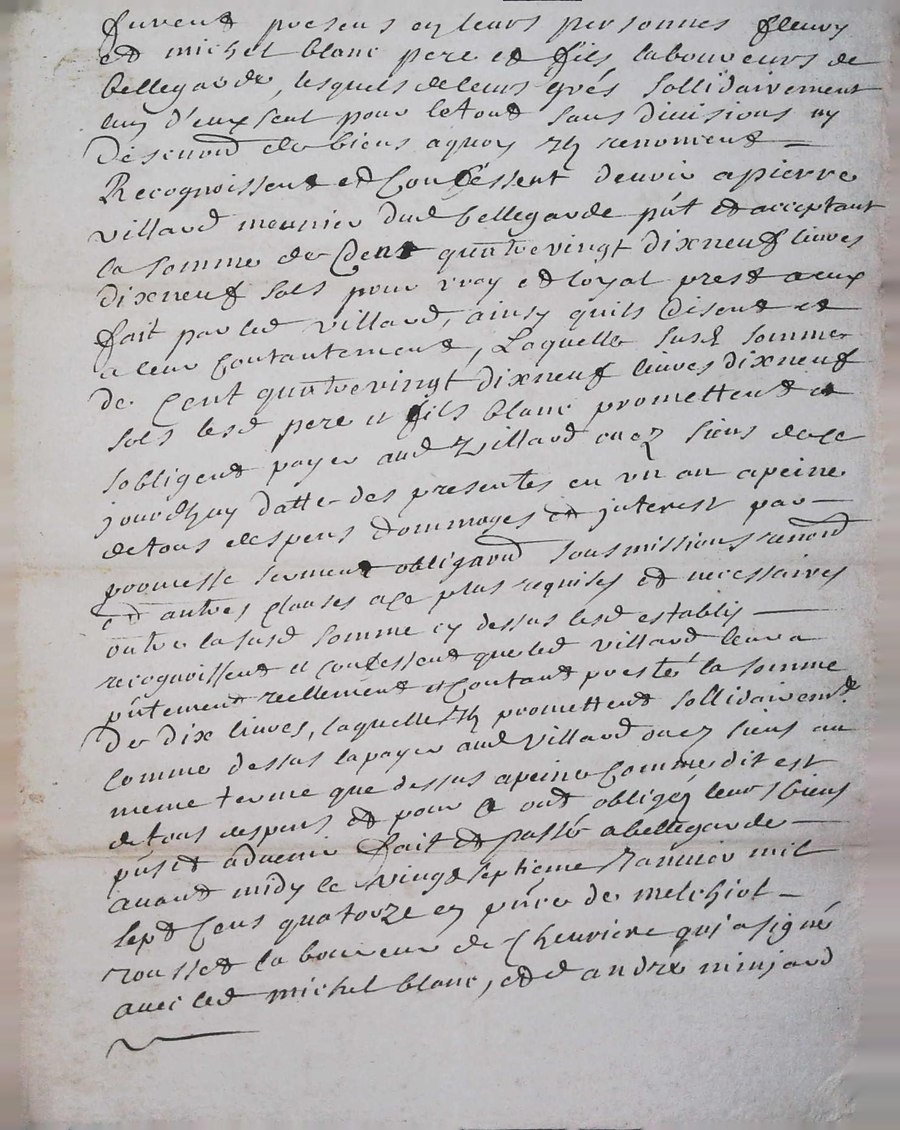 furent presens en leurs personnes fleury
et michel blanc pere et fils laboureurs de
bellegarde, lesquels de leurs grés sollidairement
lun d'eux seul pour le tout sans divisions ny
de biens a quoy ilz renoncent
Recognoissent et Confessent devoir a pierre
villard meunier dud bellegarde pnt et acceptant
la somme de Cent quatre vingt dixneuf livres
dixneuf sols pour vray et loyal prest a eux
fait par led villard, ainsy quils disent et
a leur Contantement, Laquelle susd somme
de Cent quatrevingt dixneuf livres dixneuf
sols lesd pere et fils blanc promettent et
sobligent payer aud Villard ou ez siens de ce
jourdhuy datte des presentes en un an apeine
de tous despens dommages et interest par
promesse serment obligaond sousmissions renond
et autres clauses a ce plus requises et necessaires
outre la susd somme cy dessus lesd establis
recognoissent et confessent que led villard leur a
pntement reellement et Contant presté la somme
De dix livres, laquelle ilz promettent sollidairemt
comme dessus la payer aud Villard ou ez siens au
meme terme que dessus apeine comme dit est
de tous despens et pour ce ont obligéz leurs biens
pns et advenir fait et passé a bellegarde
avant midy le vingt septieme Janvier mil
sept Cens quatorze en pnce de melchiol
rousset laboureur de Chevriere qui a signé
avec led michel blanc, et d andré minjard